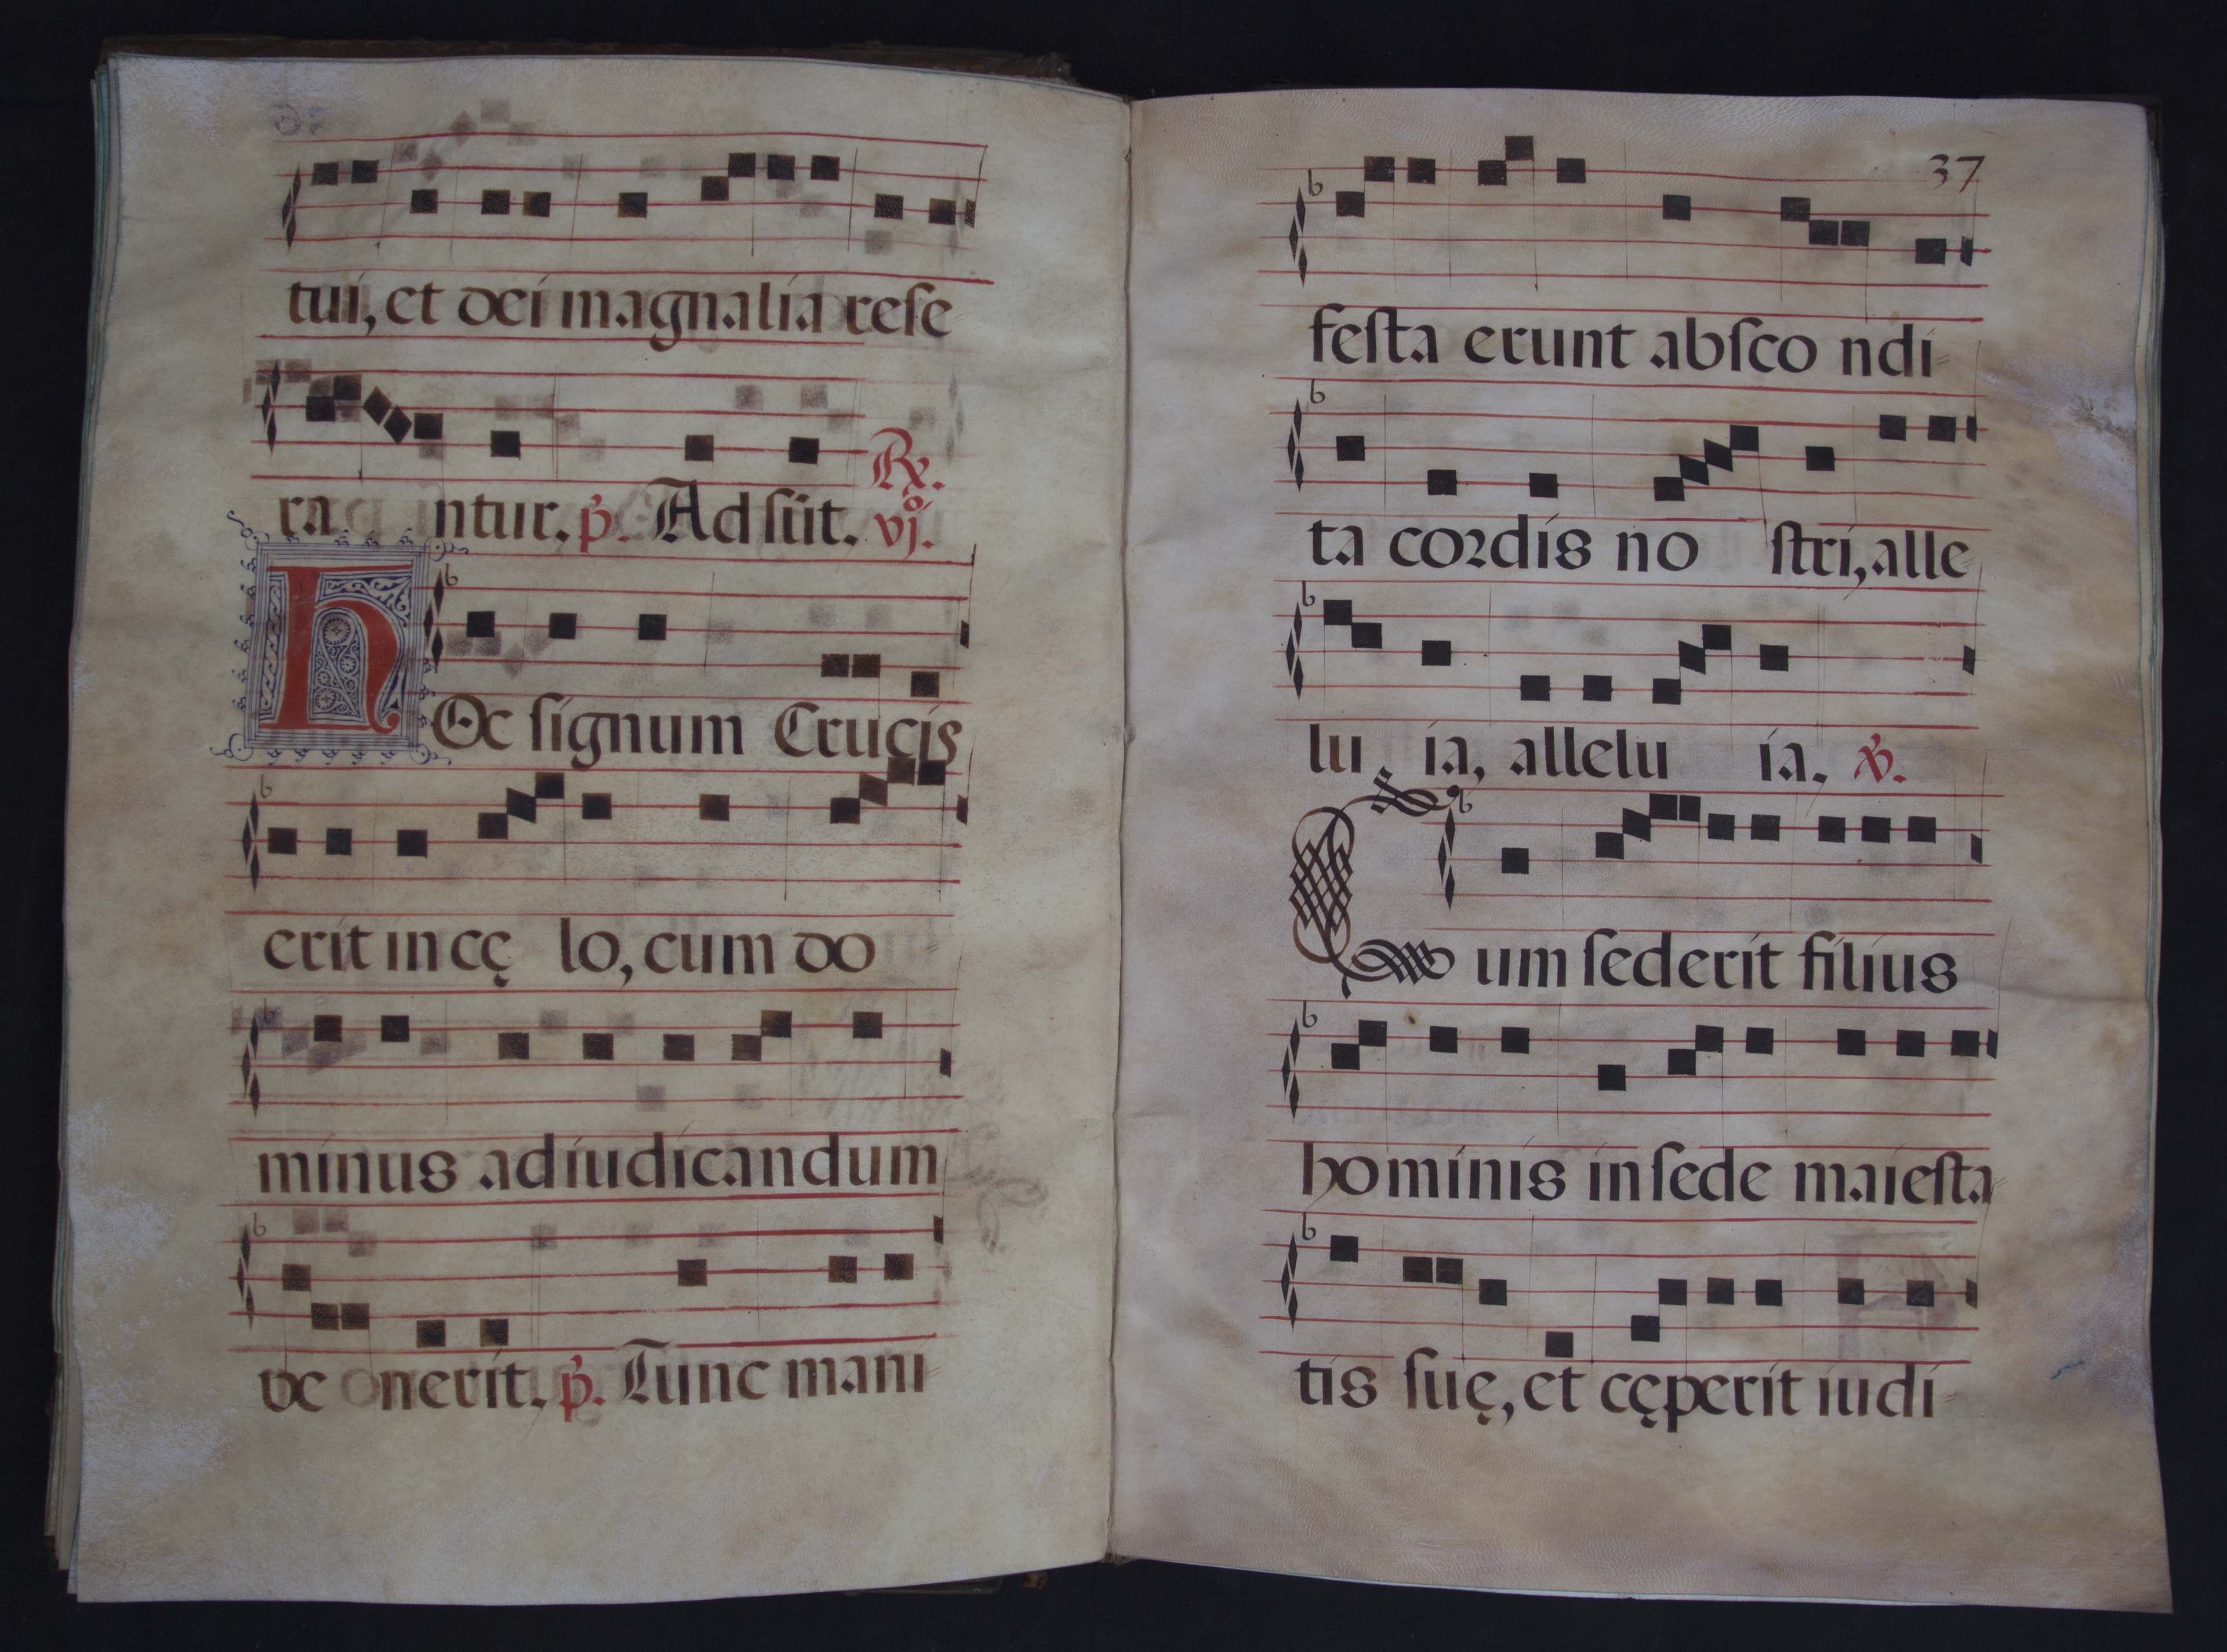 tui, et dei magnalia rese
ra ntur. p. Ad sũt. ℞.
vjº.
hOc ſignum Crucis
erit in cę lo, cum do
minus ad iudicandum
ve nerit. p. Tunc mani
37
feſta erunt abſco ndi
ta cordis no ſtri, alle
lu ia, allelu ia. ℣.
Cum ſederit filius
hominis in ſede maieſta
tis ſuę, et cęperit iudi